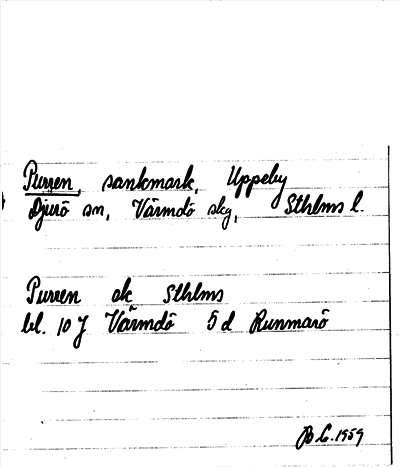 Purren, sankmark, Uppeby
Djurö sn, Värmdö skg, Sthlms l.
Purren ek Sthlms
bl. 10 J Värmdö 5 d Runmarö
B C. 1959